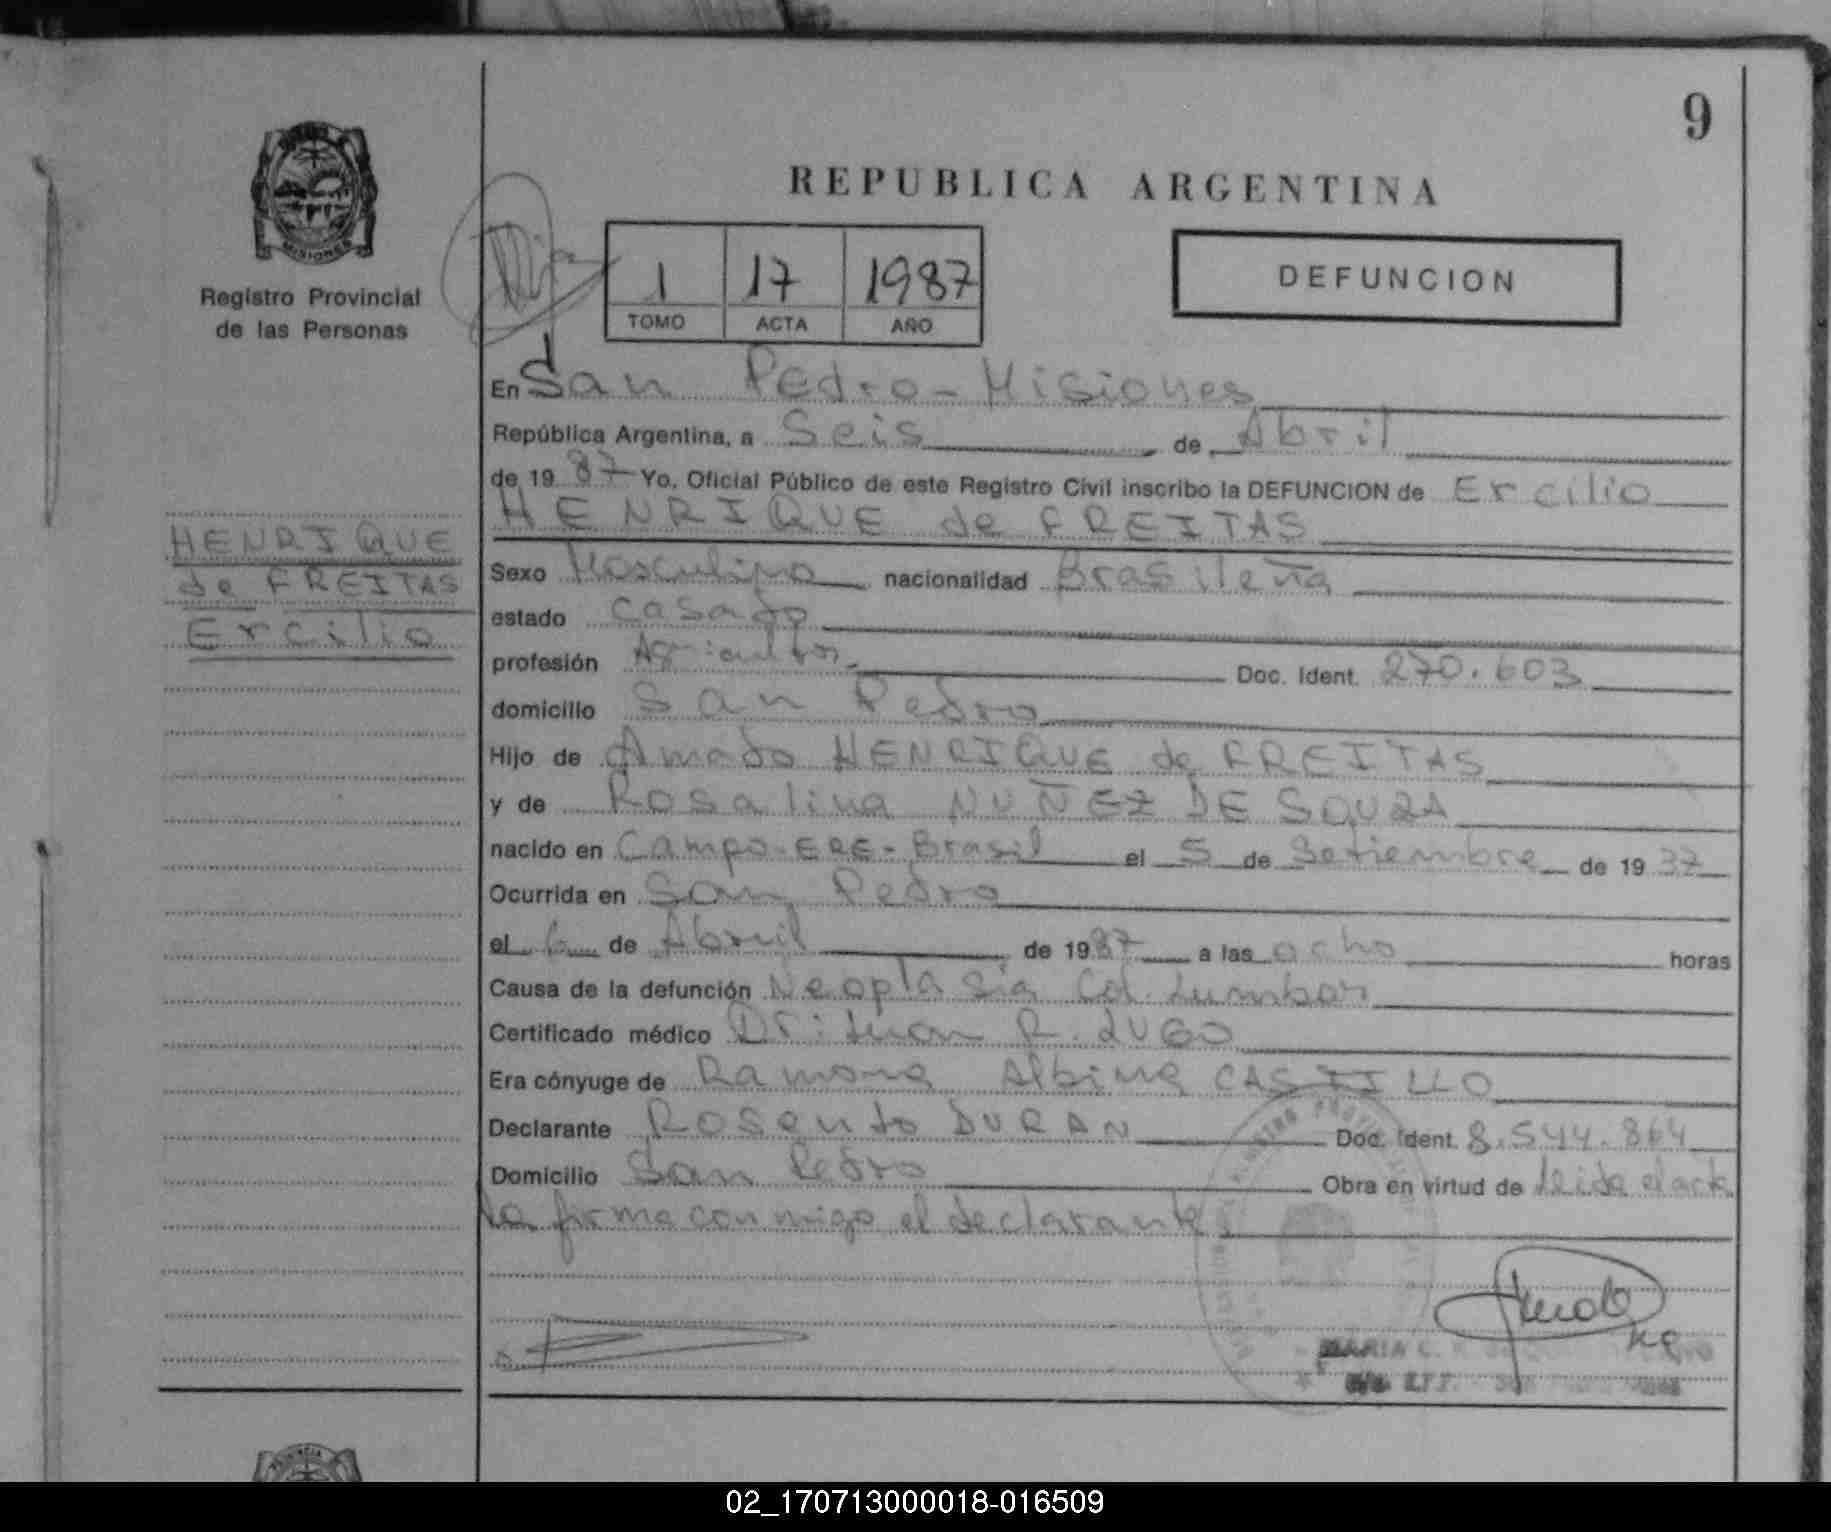 9
REPUBLICA ARGENTINA
MISIONES
Registro Provincial
de las Personas
1 17 1987
TOMO ACTA AÑO
DEFUNCION
En San Pedro - Misiones
República Argentina, a Seis de Abril
de 19 87 Yo, Oficial Público de este Registro Civil inscribo la DEFUNCION de Ercilio
HENRIQUE de FREITAS
HENRIQUE
de FREITAS
Ercilio
Sexo Masculino nacionalidad Brasileña
estado casado
profesión Agricultor Doc. Ident. 270.603
domicilio San Pedro
Hijo de Amado HENRIQUE de FREITAS
y de Rosalina NUÑEZ DE SOUZA
nacido en Campo-ERE-Brasil el 5 de Setiembre de 19 37
Ocurrida en San Pedro
el 6 de Abril de 1987 a las ocho horas
Causa de la defunción Neoplasia Col. Lumbar
Certificado médico Dr: Juan R. LUGO
Era cónyuge de Ramona Albina CASTILLO
Declarante Rosento DURAN Doc. Ident. 8.544.864
Domicilio San Pedro Obra en virtud de leida el acta
la firma con migo el declarante
MARIA C.
PROVINCIA
02_170713000018-016509